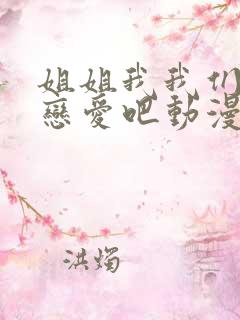 姐姐我我们
戀愛吧動漫
洪燭